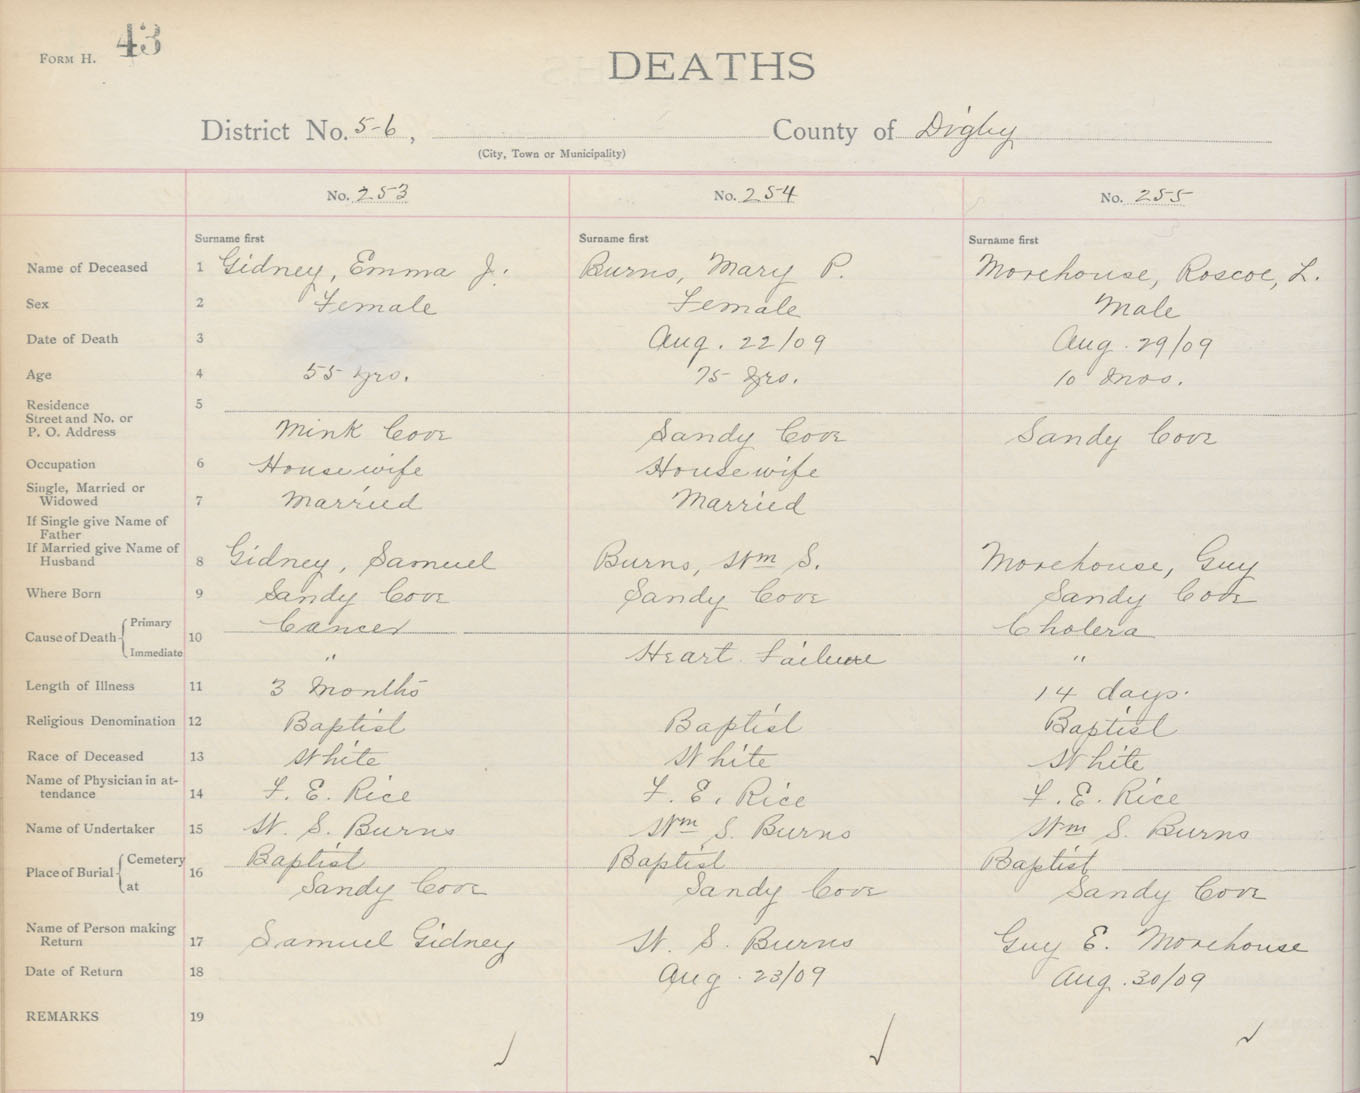 FORM H. 43
DEATHS
District No. 5-6, County of Digby
(City, Town or Municipality)
No. 253 No. 254 No. 255
Surname first Surname first Surname first
Name of Deceased 1 Gidney, Emma J. Burns, Mary P. Morehouse, Roscoe, L.
Sex 2 Female Female Male
Date of Death 3 Aug. 22/09 Aug. 29/09
Age 4 55 yrs. 75 yrs. 10 mos.
Residence 5
Street and No. or
P. O. Address Mink Cove Sandy Cove Sandy Cove
Occupation 6 Housewife Housewife
Single, Married or
Widowed 7 Married Married
If Single give Name of
Father
If Married give Name of
Husband 8 Gidney, Samuel Burns, Wm S. Morehouse, Guy
Where Born 9 Sandy Cove Sandy Cove Sandy Cove
Cause of Death Primary 10 Cancer Cholera
Immediate " Heart Failure "
Length of Illness 11 3 Months 14 days.
Religious Denomination 12 Baptist Baptist Baptist
Race of Deceased 13 White White White
Name of Physician in at-
tendance 14 F. E. Rice F. E. Rice F. E. Rice
Name of Undertaker 15 W. S. Burns Wm S. Burns Wm S. Burns
Place of Burial Cemetery 16 Baptist Baptist Baptist
at Sandy Cove Sandy Cove Sandy Cove
Name of Person making
Return 17 Samuel Gidney W. S. Burns Guy E. Morehouse
Date of Return 18 Aug. 23/09 Aug. 30/09
REMARKS 19